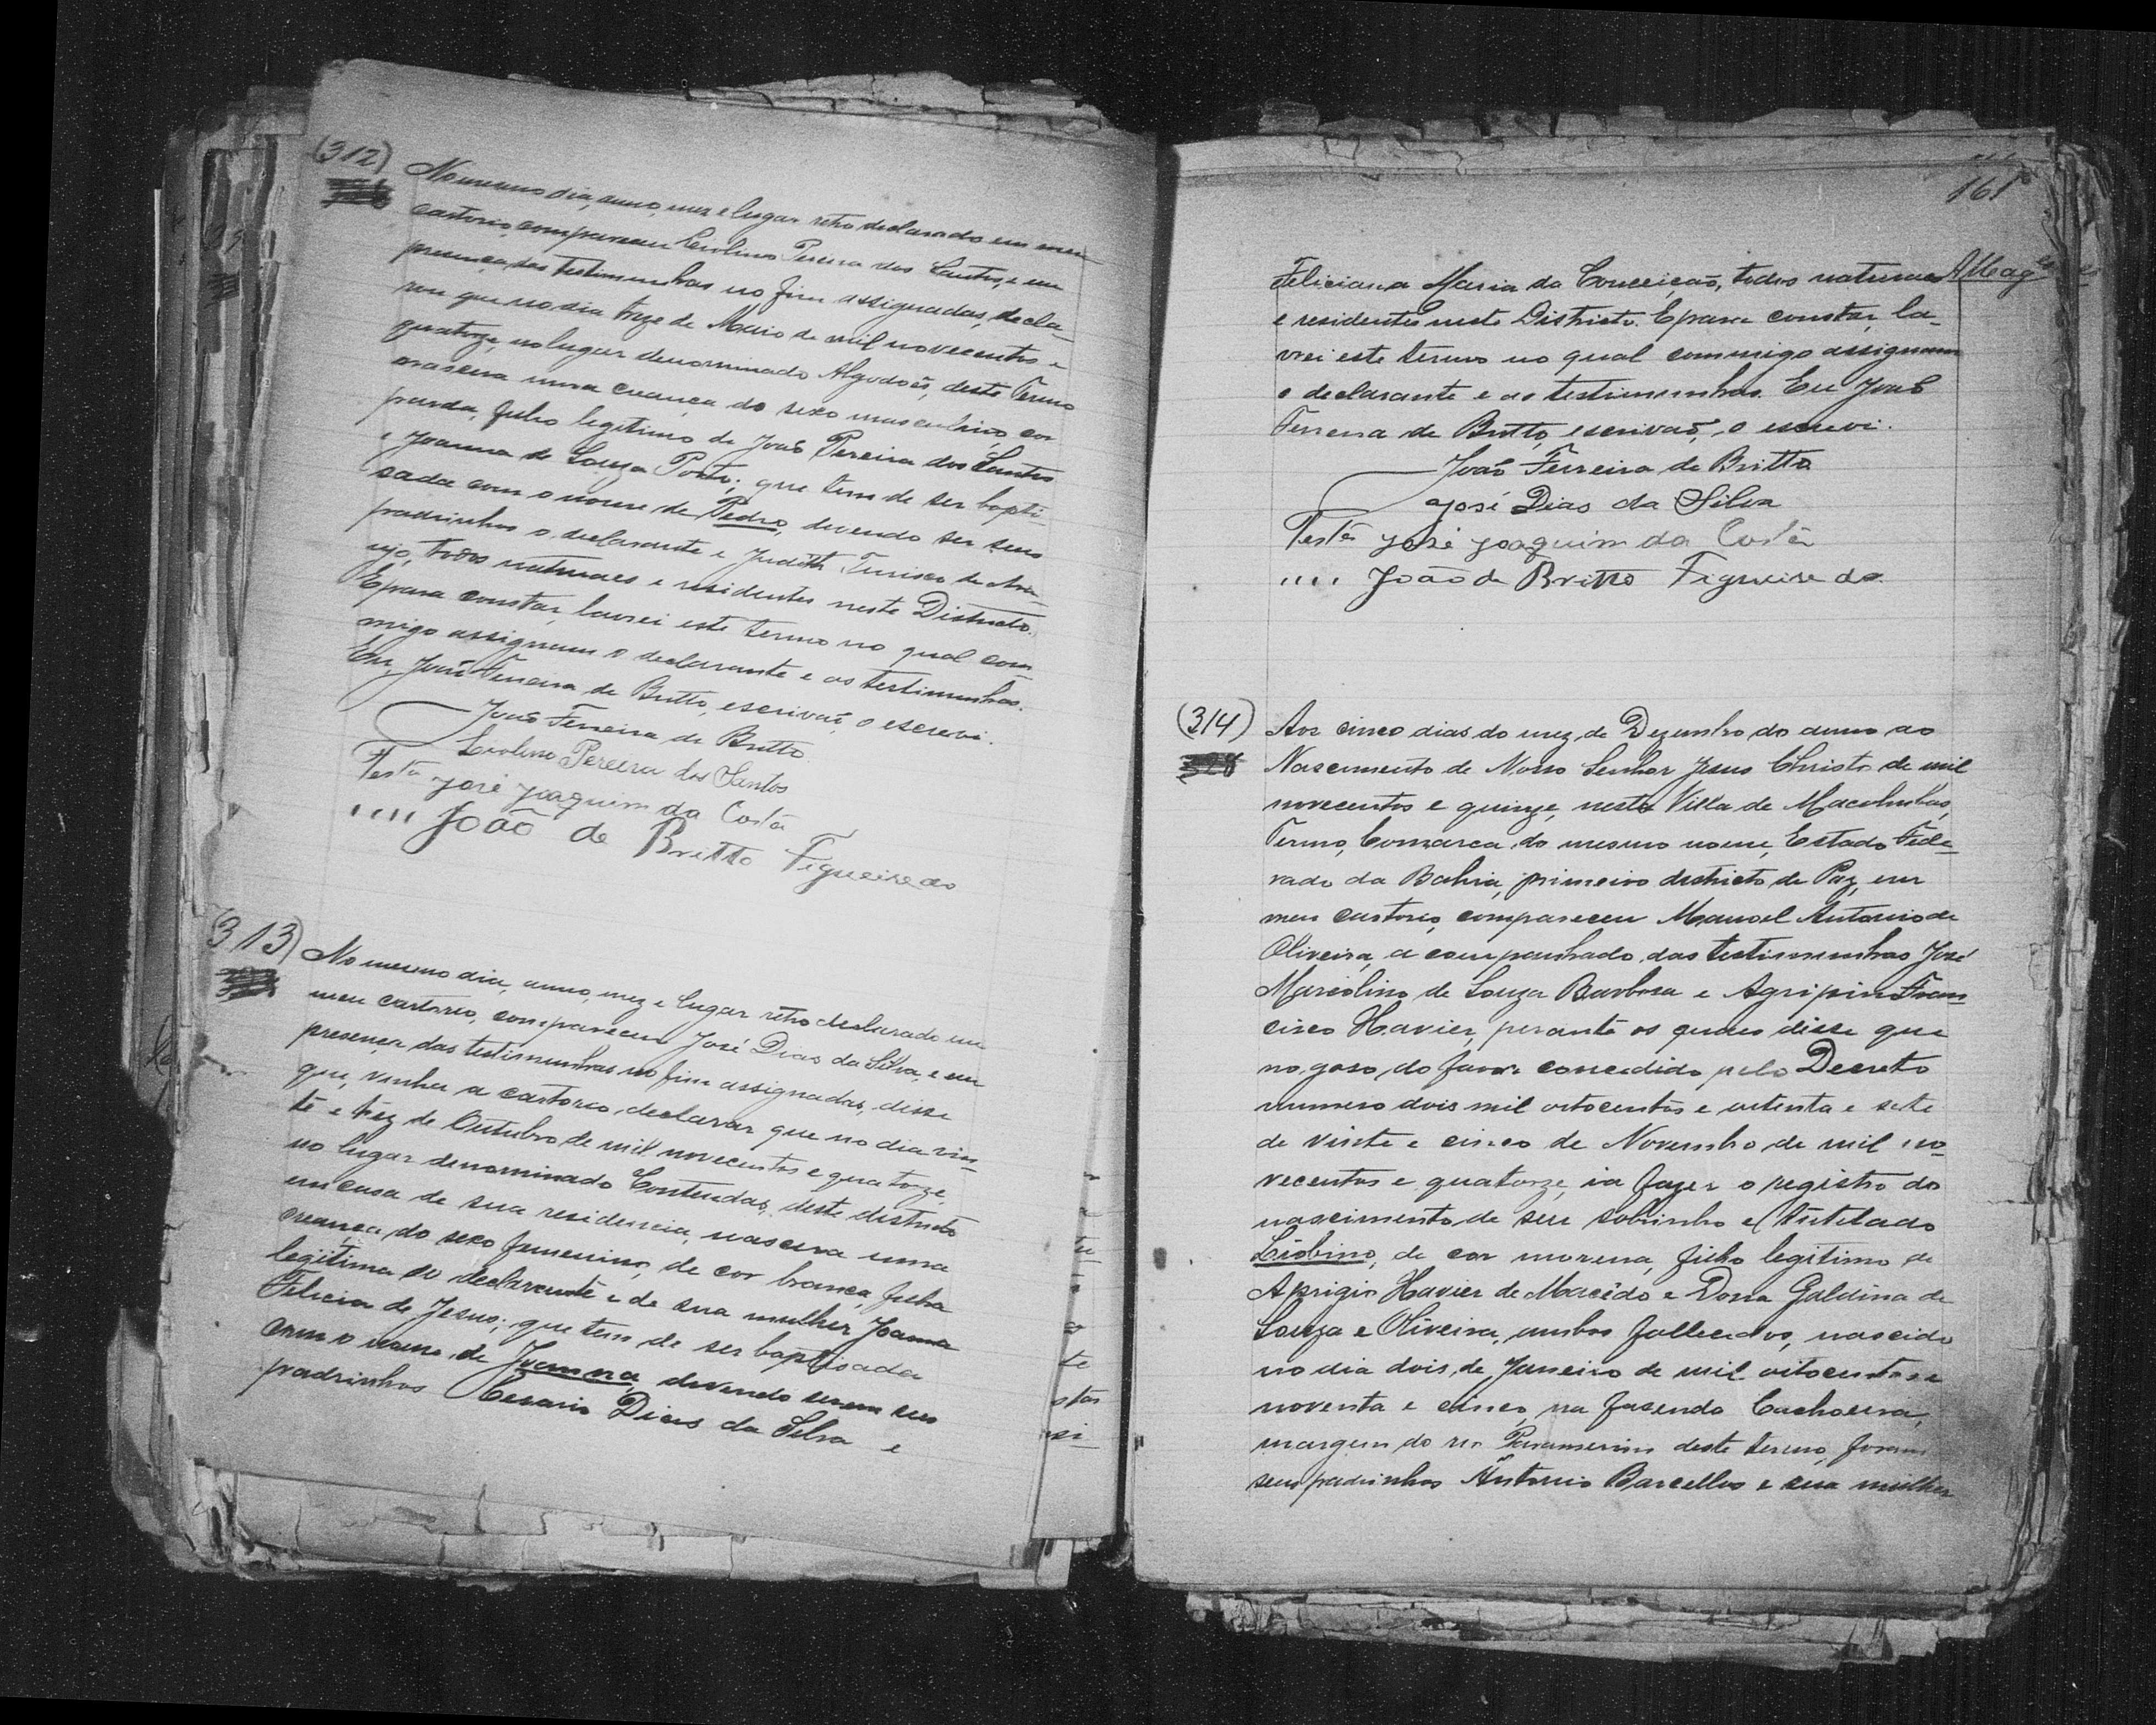 (312)
No mesmo dia, anno, mez e lugar retro declarado em meu
cartorio, compareceu Leolino Pereira dos Santos, e em
presença das testimunhas no fim assignadas, decla-
rou que no dia treze de Maio de mil novecentos e
quatorze, no lugar denominado Algodoẽs, deste Termo
nascera uma creança do sexo masculino, cor
parda, filho legitimo de Joaõ Pereira dos Santos
e Joanna de Souza Porto; que tem de ser bapti-
sada com o nome de Pedro, devendo ser seus
padrinhos o declarante e Judith de Arau-
jo, todos naturaes e residentes neste Districto.
E para constar, lavrei este termo no qual com-
migo assignam o declarante e as testimunhas.
Eu, Joaõ Ferreira de Britto, escrivaõ, o escrevi.
Joaõ Ferreira de Britto
Leolino Pereira dos Santos
Testª José Joaquim da Costa
"" João de Britto Figueiredo
313)
No mesmo dia, anno, mez e lugar retro declarado em
meu cartorio, compareceu José Dias da Silva, e em
presença das testimunhas no fim assignadas, disse
que, vinha a cartorio declarar que no dia vin-
te e trez de Outubro de mil novecentos e quatorze,
no lugar denominado Contendas, deste districto
em casa de sua residencia, nascera uma
creança do sexo femenino, de cor branca, filha
legitima do declarante e de sua mulher Joanna
Felicia de Jesus; que tem de ser baptisada
com o nome de Joanna, devendo serem seus
padrinhos Cesario Dias da Silva e
te
stas
si-
161
Feliciana Maria da Conceiçaõ, todos naturaes
e residentes neste Districto. E para constar, la-
vrei este termo no qual commigo assignam
o declarante e as testimunhas. Eu Joaõ
Ferreira de Britto, escrivaõ, o escrevi.
Joaõ Ferreira de Britto
José Dias da Silva
Testª José Joaquim da Costa
"" João de Britto Figueiredo.
(314)
Aos cinco dias do mez de Dezembro do anno do
Nascimento de Nosso Senhor Jesus Christo de mil
novecentos e quinze, nesta Villa de Macahubas,
Termo, Comarca do mesmo nome, Estado Fede-
rado da Bahia, primeiro districto de Paz, em
meu cartorio, compareceu Manoel Antonio de
Oliveira, acompanhado das testimunhas José
Marcolino de Souza Barbosa e Agripino Fran-
cisco Xavier, perante os quaes disse que
no goso do favor concedido pelo Decreto
numero dois mil oitocentos e oitenta e sete
de vinte e cinco de Novembro de mil no-
vecentos e quatorze, ia fazer o registro do
nascimento de seu sobrinho e tutelado
Liobino, de cor morena, filho legitimo de
Aprigio Xavier de Macêdo e Dona Galdina de
Souza e Oliveira, ambos fallecidos, nascido
no dia dois de Janeiro de mil oitocentos e
noventa e cinco, na fasenda Cachoeira,
margem do rio Paramerim deste termo, foram
seus padrinhos Antonio Barcellos e sua mulher